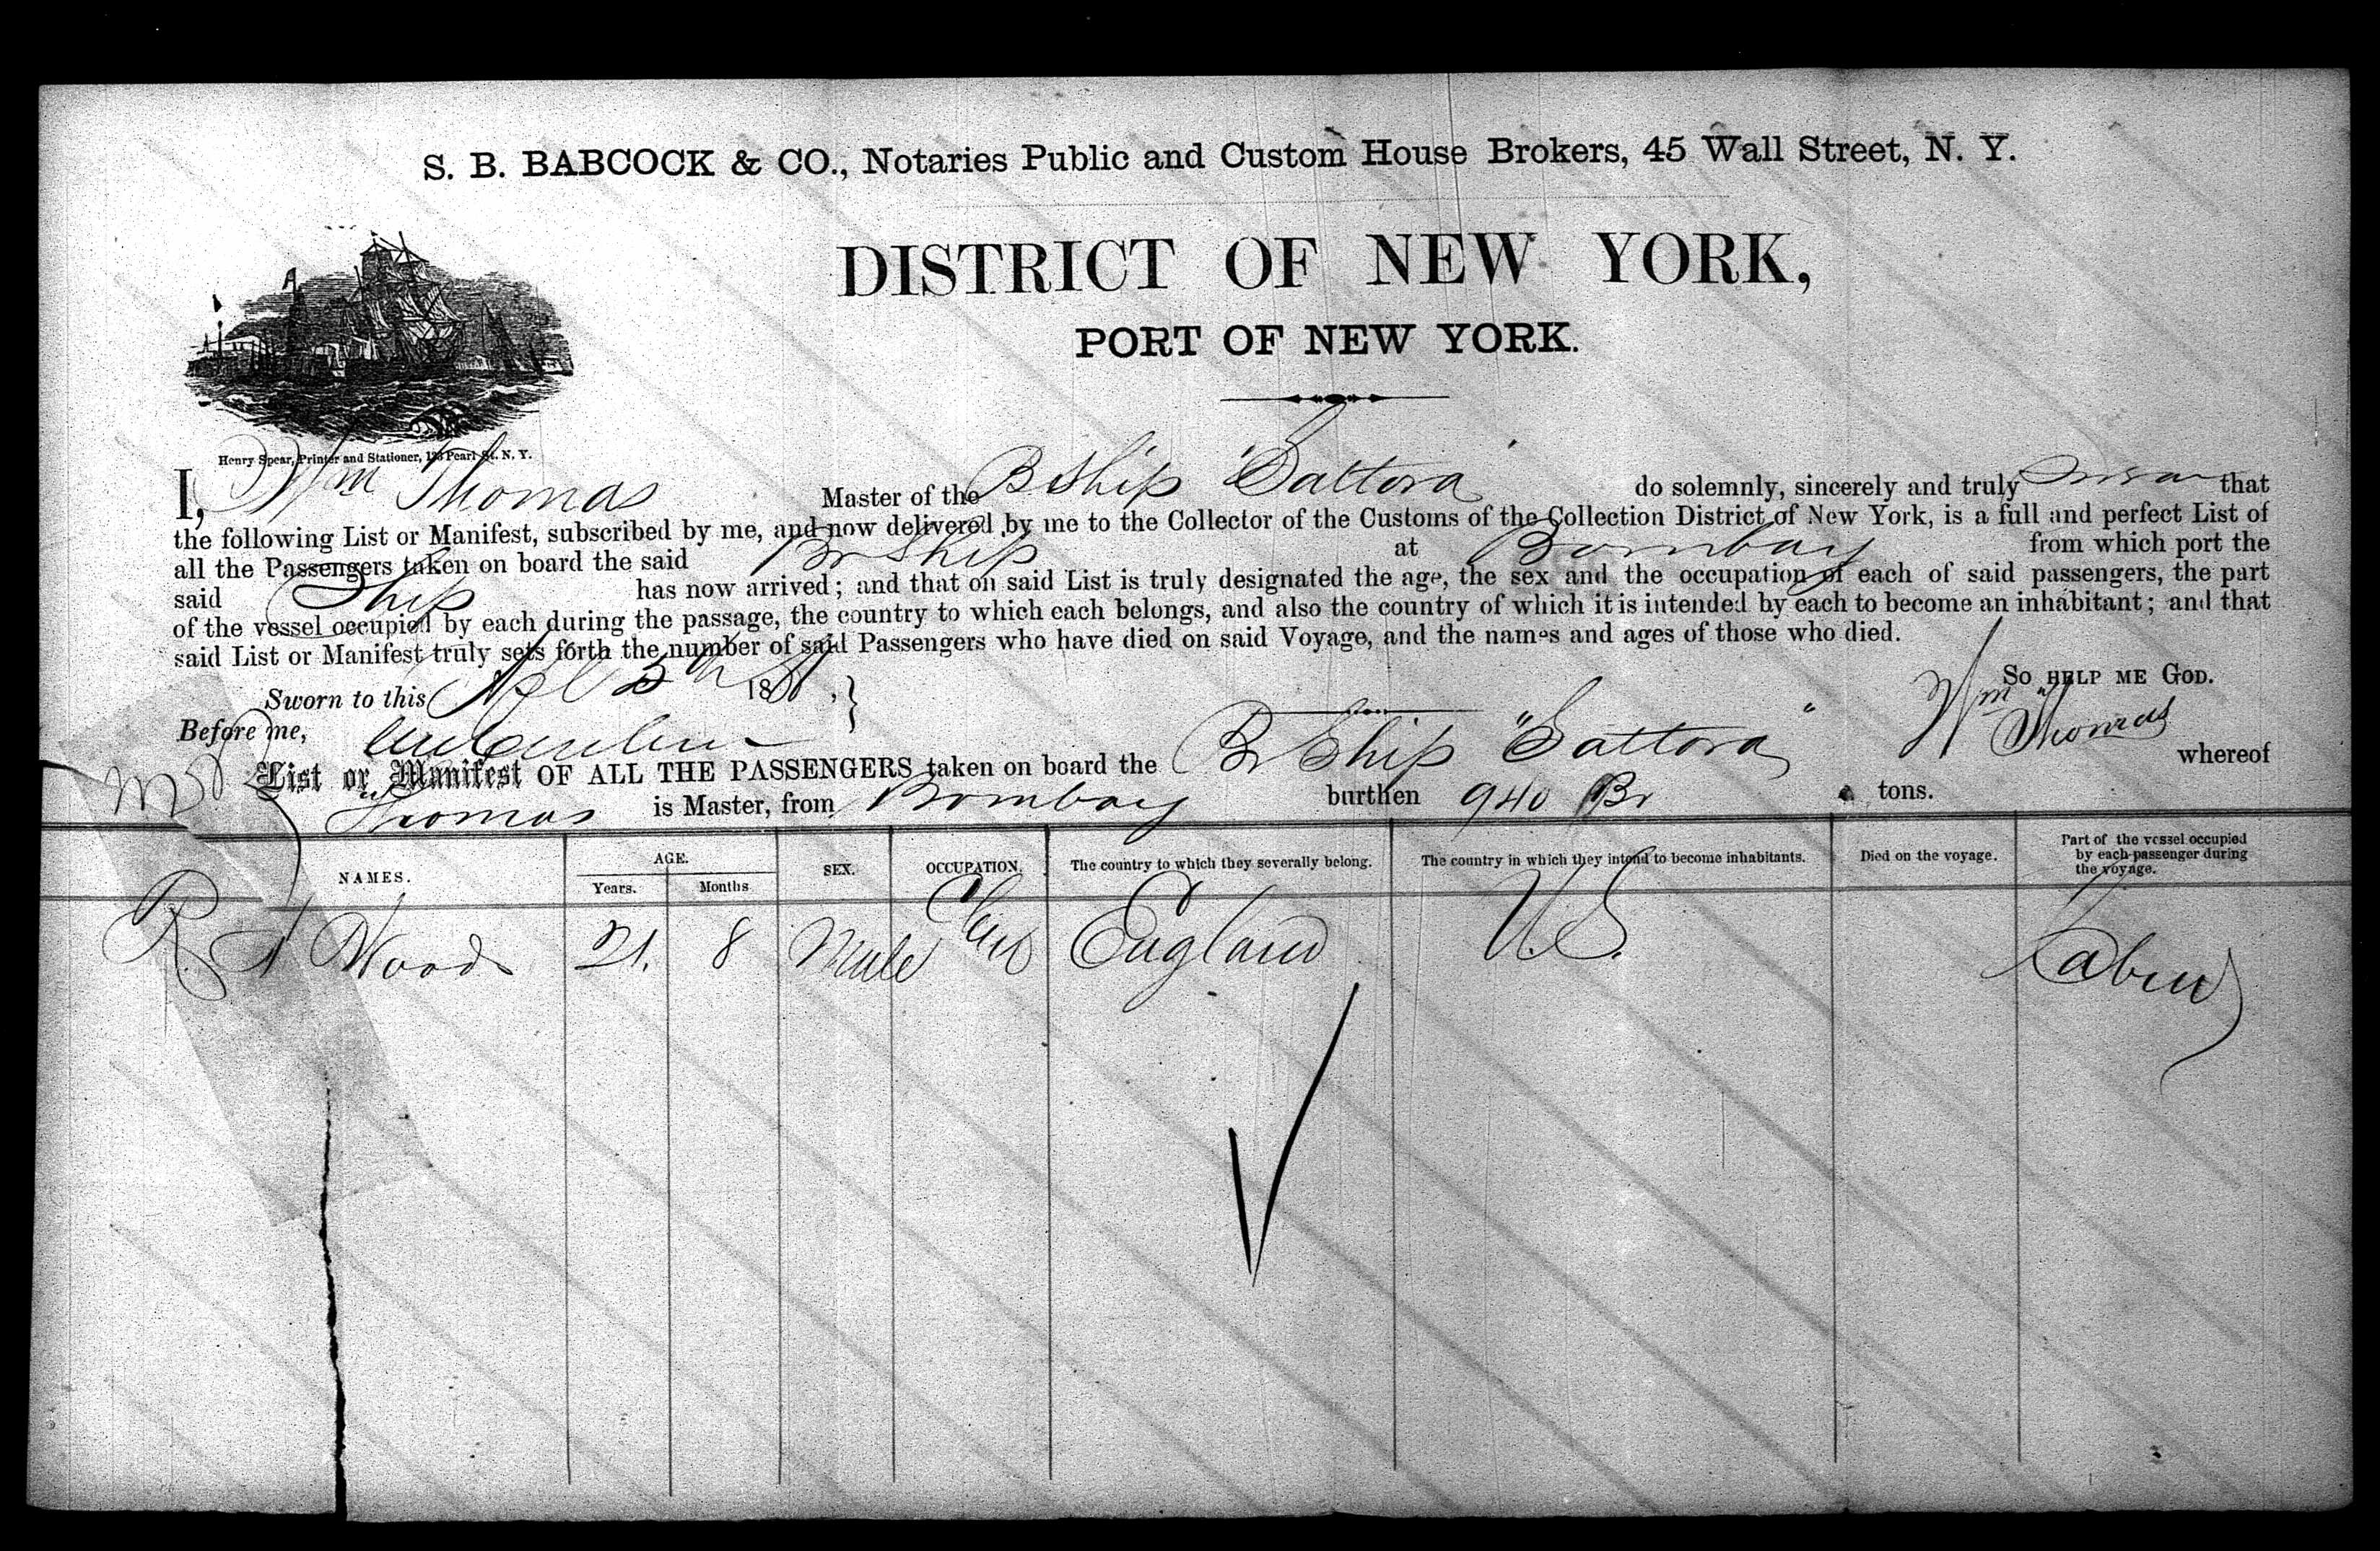 S. B. BABCOCK & CO., Notaries Public and Custom House Brokers, 45 Wall Street, N. Y.
DISTRICT OF NEW YORK,
PORT OF NEW YORK.
Henry Spear, Printer and Stationer, Pearl St. N. Y.
I, Wm Thomas Master of the B Ship "Sattara" do solemnly, sincerely and truly swear that
the following List or Manifest, subscribed by me, and now delivered by me to the Collector of the Customs of the Collection District of New York, is a full and perfect List of
all the Passengers taken on board the said Br Ship at Bombay from which port the
said Ship has now arrived; and that on said List is truly designated the age, the sex and the occupation of each of said passengers, the part
of the vessel occupied by each during the passage, the country to which each belongs, and also the country of which it is intended by each to become an inhabitant; and that
said List or Manifest truly sets forth the number of said Passengers who have died on said Voyage, and the names and ages of those who died.
SO HELP ME GOD.
Sworn to this 5th 18 }
Wm Thomas
Before me,
List or Manifest OF ALL THE PASSENGERS taken on board the Br Ship "Sattara" whereof
Thomas is Master, from Bombay burthen 940 Br tons.
NAMES. AGE. Years. Months SEX. OCCUPATION. The country to which they severally belong. The country in which they intend to become inhabitants. Died on the voyage. Part of the vessel occupied by each passenger during the voyage.
R A Woods 21. 8 Male England U.S. Cabin